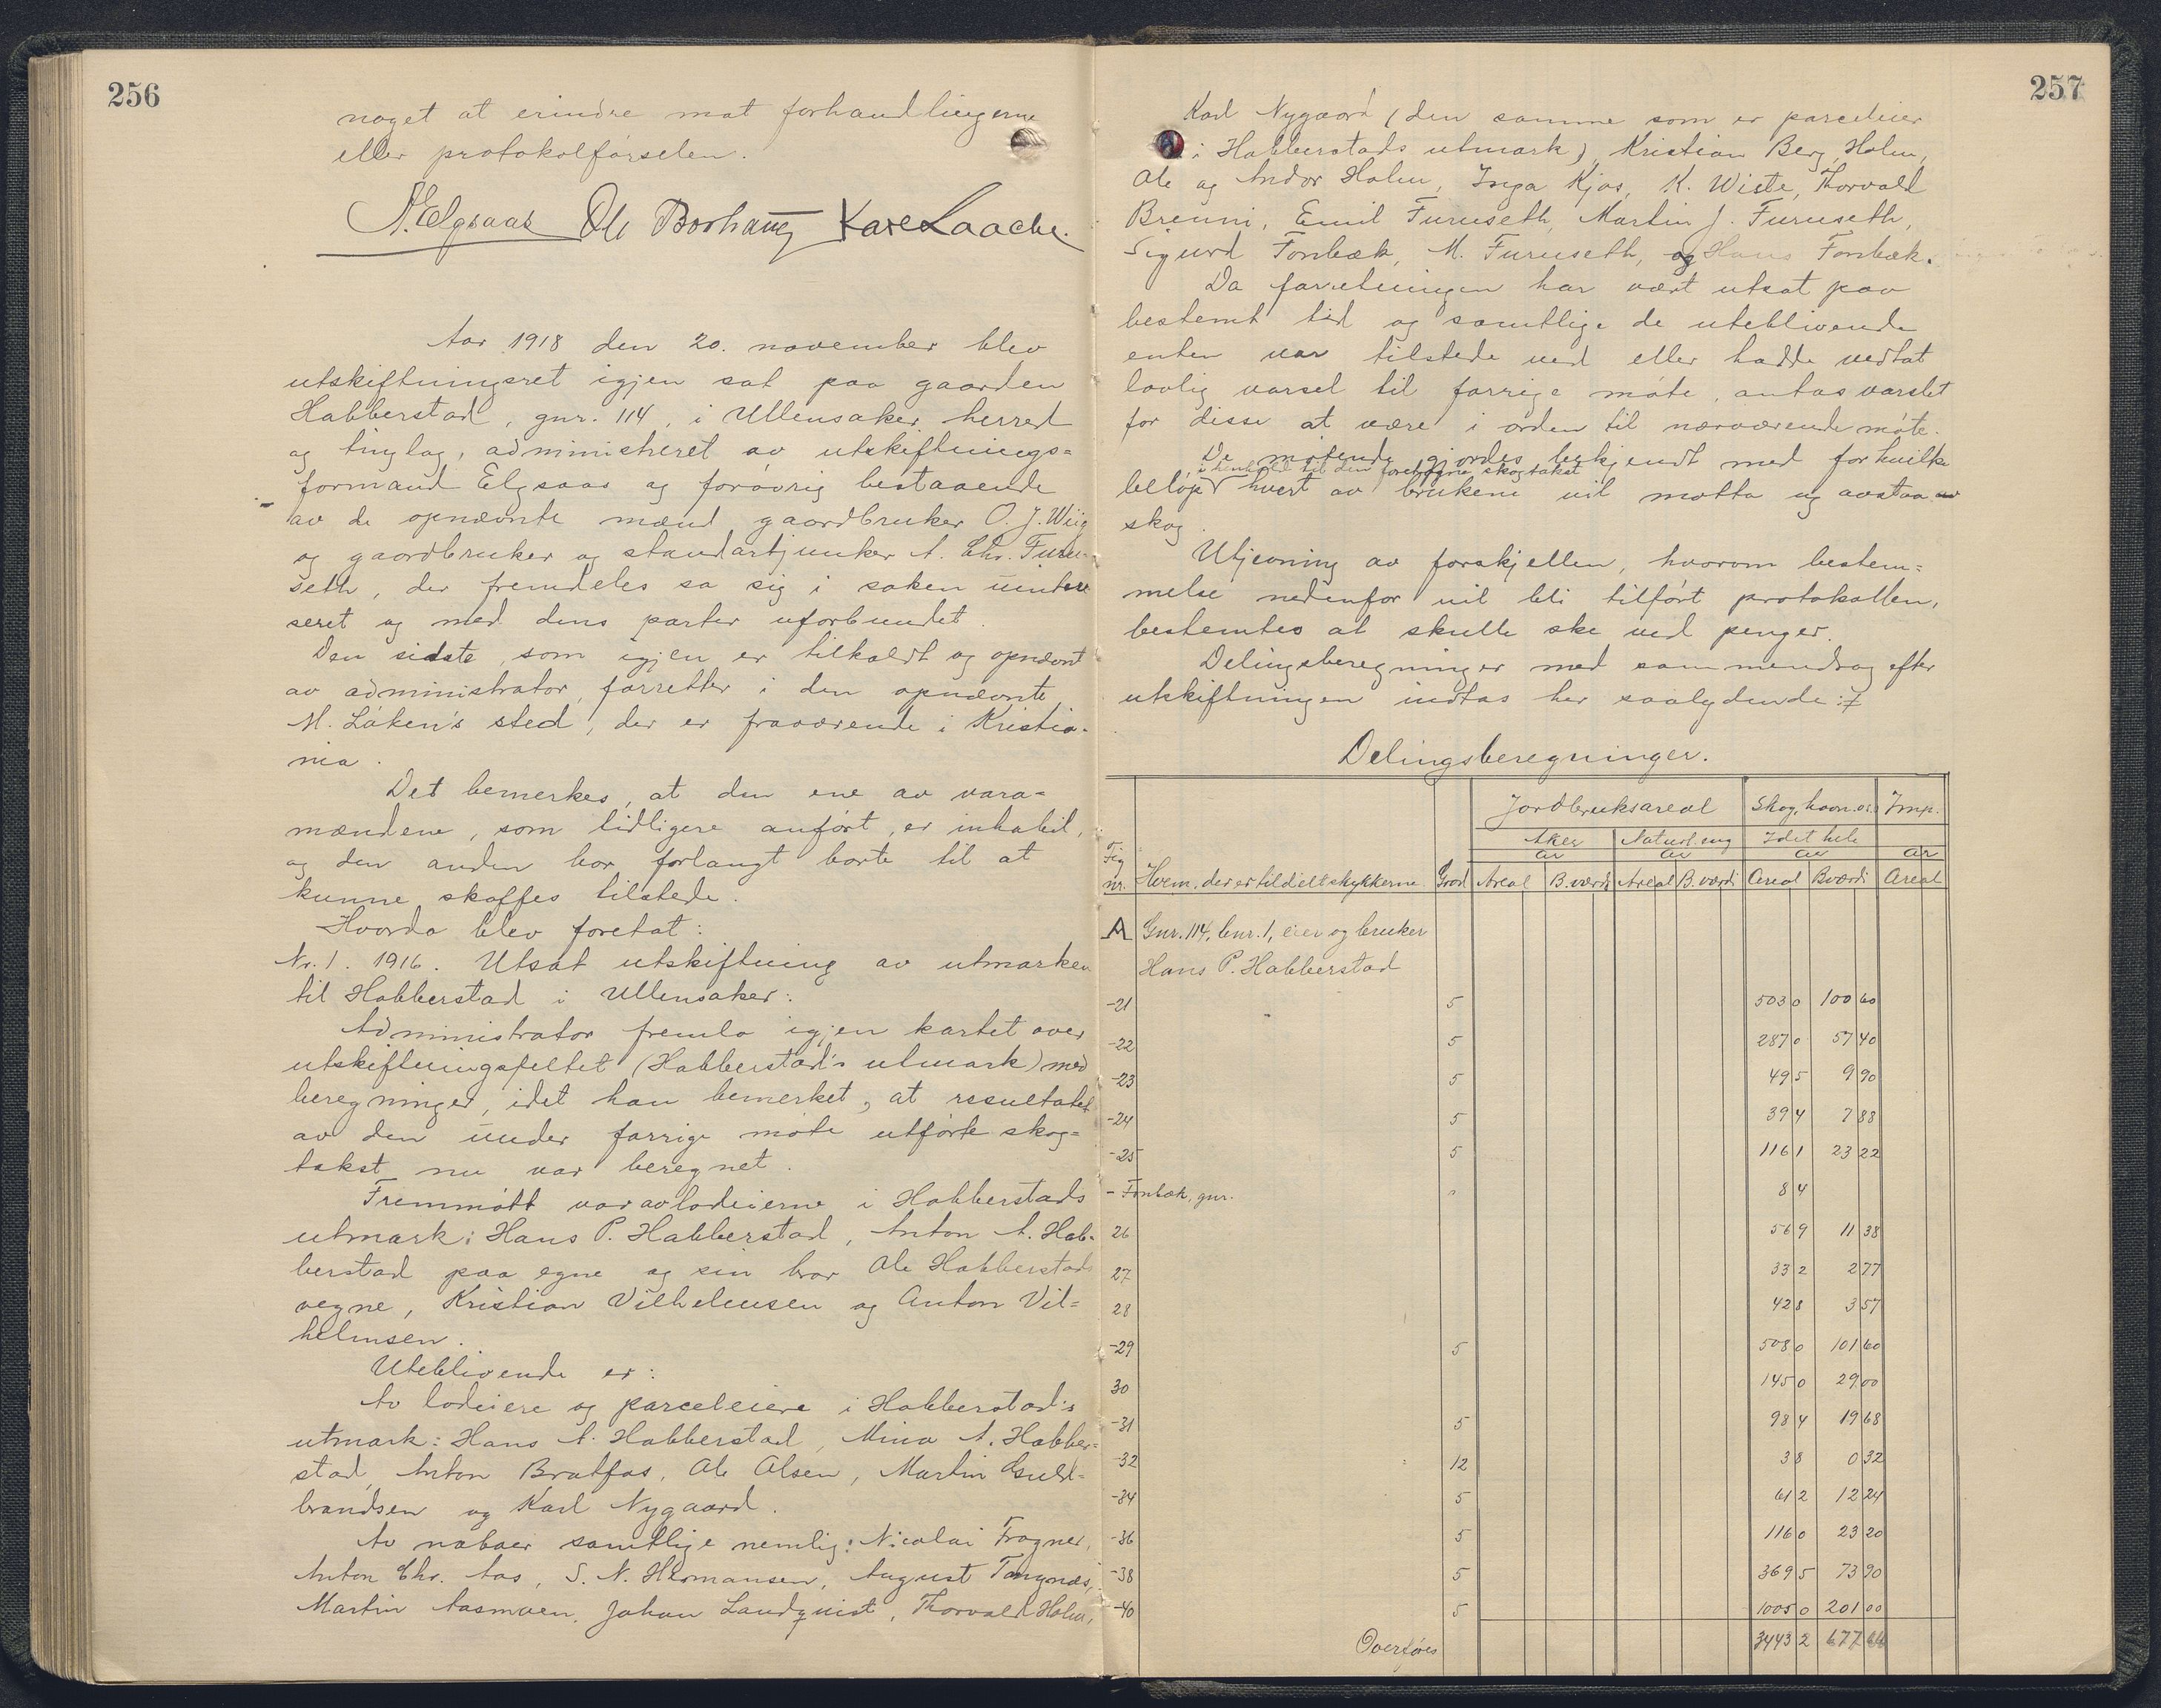 256
noget at erindre mot forhandlingerne
eller protokolførselen.
A. Elgsaas Ole Borhaug Kare Laache.
Aar 1918 den 20. november blev
utskiftningsret igjen sat paa gaarden
Habberstad, gnr. 114, i Ullensaker herred
og tinglag, administreret av utskiftnings=
formand Elgsaas og forøvrig bestaaende
av de opnævnte mænd gaardbruker O. J. Wiig
og gaardbruker og standartjunker A. Chr. Furu-
seth, der fremdeles sa sig i saken uinteres
seret og med dens parter uforbundet.
Den sidste, som igjen er tilkaldt og opnævnt
av administrator, forretter i den opnævnte
M. Låken's sted, der er fraværende i Kristia-
nia.
Det bemerkes, at den ene av vara=
mændene, som tidligere anført, er inhabil,
og den anden bor forlangt borte til at
kunne skaffes tilstede.
Hvorda blev foretat:
Nr. 1. 1916. Utsat utskiftning av utmarken
til Habberstad i Ullensaker:
Administrator fremla igjen kartet over
utskiftningsfeltet (Habberstad's utmark) med
beregninger, idet han bemerket, at resultatet
av den under forrige møte utførte skog=
takst nu var beregnet.
Fremmøtt var av lodeierne i Habberstads
utmark: Hans P. Habberstad, Anton A. Hab-
berstad paa egne og sin bror Ole Habberstads
vegne, Kristian Vilhelmsen og Anton Vil=
helmsen.
Uteblivende er:
Av lodeiere og parceleiere i Habberstad's
utmark: Hans A. Habberstad, Mina A. Habber=
stad, Anton Bratfos, Ole Olsen, Martin Guld=
brandsen og Karl Nygaard.
Av naboer samtlige nemlig: Nicolai Fragner,
Anton Chr. Aas, S. N. Hermansen, August Tangnæs,
Martin Aasmoen, Johan Landqvist, Thorvald Holm,
257
Karl Nygaard (den samme som er parceleier
i Habberstads utmark), Kristian Berg, Holm,
Ole og Andor Holm, Inga Kjos, K. Wiste, Thorvald
Brenni, Emil Furuseth, Martin J. Furuseth,
Sigurd Fonbæk, M. Furuseth, og Hans Fonbæk.
Da forretningen har vært utsat paa
bestemt tid og samtlige de uteblivende
enten var tilstede ved eller hadde vedtat
lovlig varsel til forrige møte, antas varslet
for disse at være i orden til nærværende møte.
De møtende gjordes bekjendt med for hvilke
i henhold til den foretagne skogtakst
beløp hvert av brukene vil motta og avstaa
skog.
Utjevning av forskjellen, hvorom bestem=
melse nedenfor vil bli tilført protokollen,
bestemtes at skulle ske ved penger.
Delingsberegninger med sammendrag efter
utskiftningen indtas her saalydende:
Delingsberegninger.
Jordbruksareal Skog, havn. o.s. Imp.
Aker Naturl. eng I det hele
ar ar ar ar
Fig nr. Hvem, der er tildelt stykkerne Grad Areal B. værdi Areal B. værdi Areal B værdi Areal
A Gnr. 114, bnr. 1, eier og bruker
Hans P. Habberstad
-21 5 503 0 100 60
-22 5 287 0 57 40
-23 5 49 5 9 90
-24 5 39 4 7 88
-25 5 116 1 23 22
- Fonbæk, gnr. " 8 4
26 56 9 11 38
27 33 2 2 77
28 42 8 3 57
-29 5 508 0 101 60
30 145 0 29 00
-31 5 98 4 19 68
-32 12 3 8 0 32
-34 5 61 2 12 24
-36 5 116 0 23 20
-38 5 369 5 73 90
-40 5 1005 0 201 00
Overføres 3443 2 677 66